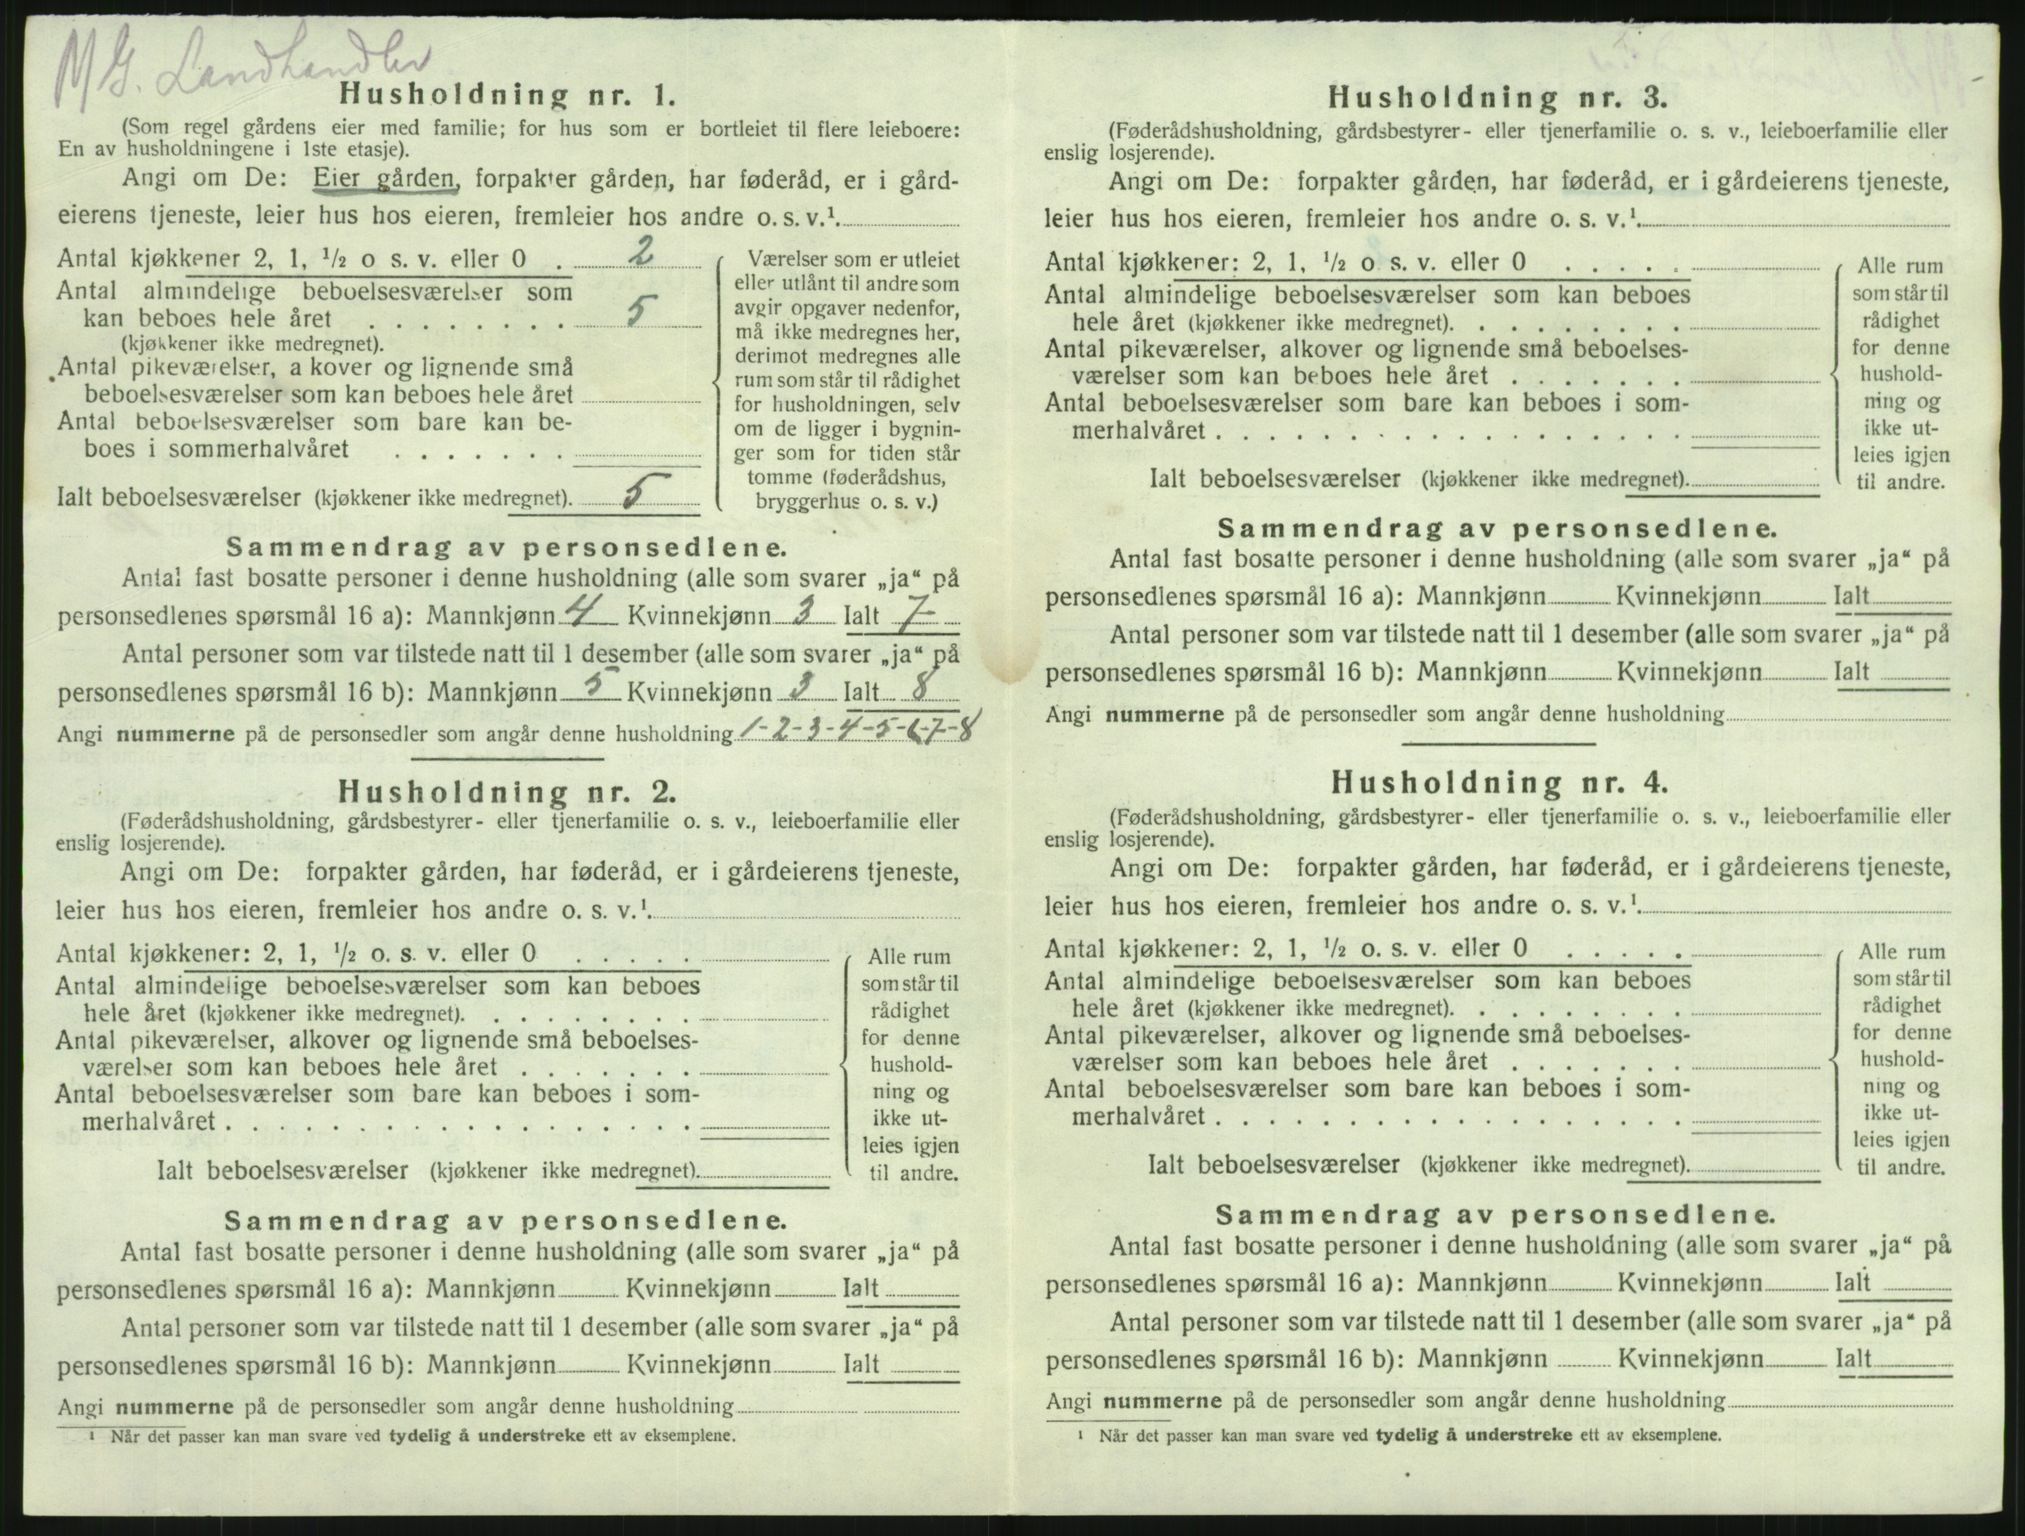 M G. Landhandler
Husholdning nr. 1.
(Som regel gårdens eier med familie; for hus som er bortleiet til flere leieboere:
En av husholdningene i 1ste etasje).
Angi om De: Eier gården, forpakter gården, har føderåd, er i gård-
eierens tjeneste, leier hus hos eieren, fremleier hos andre o. s. v.¹.
Antal kjøkkener 2, 1, ½ o s. v. eller 0 . 2
Antal almindelige beboelsesværelser som
kan beboes hele året . . . . . . . . 5
(kjøkkener ikke medregnet).
Antal pikeværelser, a kover og lignende små
beboelsesværelser som kan beboes hele året
Antal beboelsesværelser som bare kan be-
boes i sommerhalvåret . . . . . . .
Ialt beboelsesværelser (kjøkkener ikke medregnet). 5
Værelser som er utleiet
eller utlånt til andre som
avgir opgaver nedenfor,
må ikke medregnes her,
derimot medregnes alle
rum som står til rådighet
for husholdningen, selv
om de ligger i bygnin-
ger som for tiden står
tomme (føderådshus,
bryggerhus o. s. v.)
Sammendrag av personsedlene.
Antal fast bosatte personer i denne husholdning (alle som svarer „ja“ på
personsedlenes spørsmål 16 a): Mannkjønn 4 Kvinnekjønn 3 Ialt 7
Antal personer som var tilstede natt til 1 desember (alle som svarer „ja“ på
personsedlenes spørsmål 16 b): Mannkjønn 5 Kvinnekjønn 3 Ialt 8
Angi nummerne på de personsedler som angår denne husholdning 1-2-3-4-5-6-7-8
Husholdning nr. 2.
(Føderådshusholdning, gårdsbestyrer- eller tjenerfamilie o. s. v., leieboerfamilie eller
enslig losjerende).
Angi om De: forpakter gården, har føderåd, er i gårdeierens tjeneste,
leier hus hos eieren, fremleier hos andre o. s. v.¹.
Antal kjøkkener: 2, 1, ½ o. s. v. eller 0 . . . . .
Antal almindelige beboelsesværelser som kan beboes
hele året (kjøkkener ikke medregnet). . . . . . . . .
Antal pikeværelser, alkover og lignende små beboelses-
værelser som kan beboes hele året . . . . . . .
Antal beboelsesværelser som bare kan beboes i som-
merhalvåret . . . . . . . . . . . . . . . . . .
Ialt beboelsesværelser (kjøkkener ikke medregnet).
Alle rum
som står til
rådighet
for denne
hushold-
ning og
ikke ut-
leies igjen
til andre.
Sammendrag av personsedlene.
Antal fast bosatte personer i denne husholdning (alle som svarer „ja“ på
personsedlenes spørsmål 16 a): Mannkjønn Kvinnekjønn Ialt
Antal personer som var tilstede natt til 1 desember (alle som svarer „ja“ på
personsedlenes spørsmål 16 b): Mannkjønn Kvinnekjønn Ialt
Angi nummerne på de personsedler som angår denne husholdning
¹ Når det passer kan man svare ved tydelig å understreke ett av eksemplene.
Husholdning nr. 3.
(Føderådshusholdning, gårdsbestyrer- eller tjenerfamilie o. s. v., leieboerfamilie eller
enslig losjerende).
Angi om De: forpakter gården, har føderåd, er i gårdeierens tjeneste,
leier hus hos eieren, fremleier hos andre o. s. v.¹.
Antal kjøkkener: 2, 1, ½ o s. v. eller 0 . . . . .
Antal almindelige beboelsesværelser som kan beboes
hele året (kjøkkener ikke medregnet). . . . . . . . .
Antal pikeværelser, alkover og lignende små beboelses-
værelser som kan beboes hele året . . . . . . .
Antal beboelsesværelser som bare kan beboes i som-
merhalvåret . . . . . . . . . . . . . . . . . .
Ialt beboelsesværelser (kjøkkener ikke medregnet).
Alle rum
som står til
rådighet
for denne
hushold-
ning og
ikke ut-
leies igjen
til andre.
Sammendrag av personsedlene.
Antal fast bosatte personer i denne husholdning (alle som svarer „ja“ på
personsedlenes spørsmål 16 a): Mannkjønn Kvinnekjønn Ialt
Antal personer som var tilstede natt til 1 desember (alle som svarer „ja“ på
personsedlenes spørsmål 16 b): Mannkjønn Kvinnekjønn Ialt
Angi nummerne på de personsedler som angår denne husholdning
Husholdning nr. 4.
(Føderådshusholdning, gårdsbestyrer- eller tjenerfamilie o. s. v., leieboerfamilie eller
enslig losjerende).
Angi om De: forpakter gården, har føderåd, er i gårdeierens tjeneste,
leier hus hos eieren, fremleier hos andre o. s. v.¹.
Antal kjøkkener: 2, 1, ½ o. s. v. eller 0 . . . . .
Antal almindelige beboelsesværelser som kan beboes
hele året (kjøkkener ikke medregnet). . . . . . . . .
Antal pikeværelser, alkover og lignende små beboelses-
værelser som kan beboes hele året . . . . . . .
Antal beboelsesværelser som bare kan beboes i som-
merhalvåret . . . . . . . . . . . . . . . . . .
Ialt beboelsesværelser (kjøkkener ikke medregnet).
Alle rum
som står til
rådighet
for denne
hushold-
ning og
ikke ut-
leies igjen
til andre.
Sammendrag av personsedlene.
Antal fast bosatte personer i denne husholdning (alle som svarer „ja“ på
personsedlenes spørsmål 16 a): Mannkjønn Kvinnekjønn Ialt
Antal personer som var tilstede natt til 1 desember (alle som svarer „ja“ på
personsedlenes spørsmål 16 b): Mannkjønn Kvinnekjønn Ialt
Angi nummerne på de personsedler som angår denne husholdning
¹ Når det passer kan man svare ved tydelig å understreke ett av eksemplene.